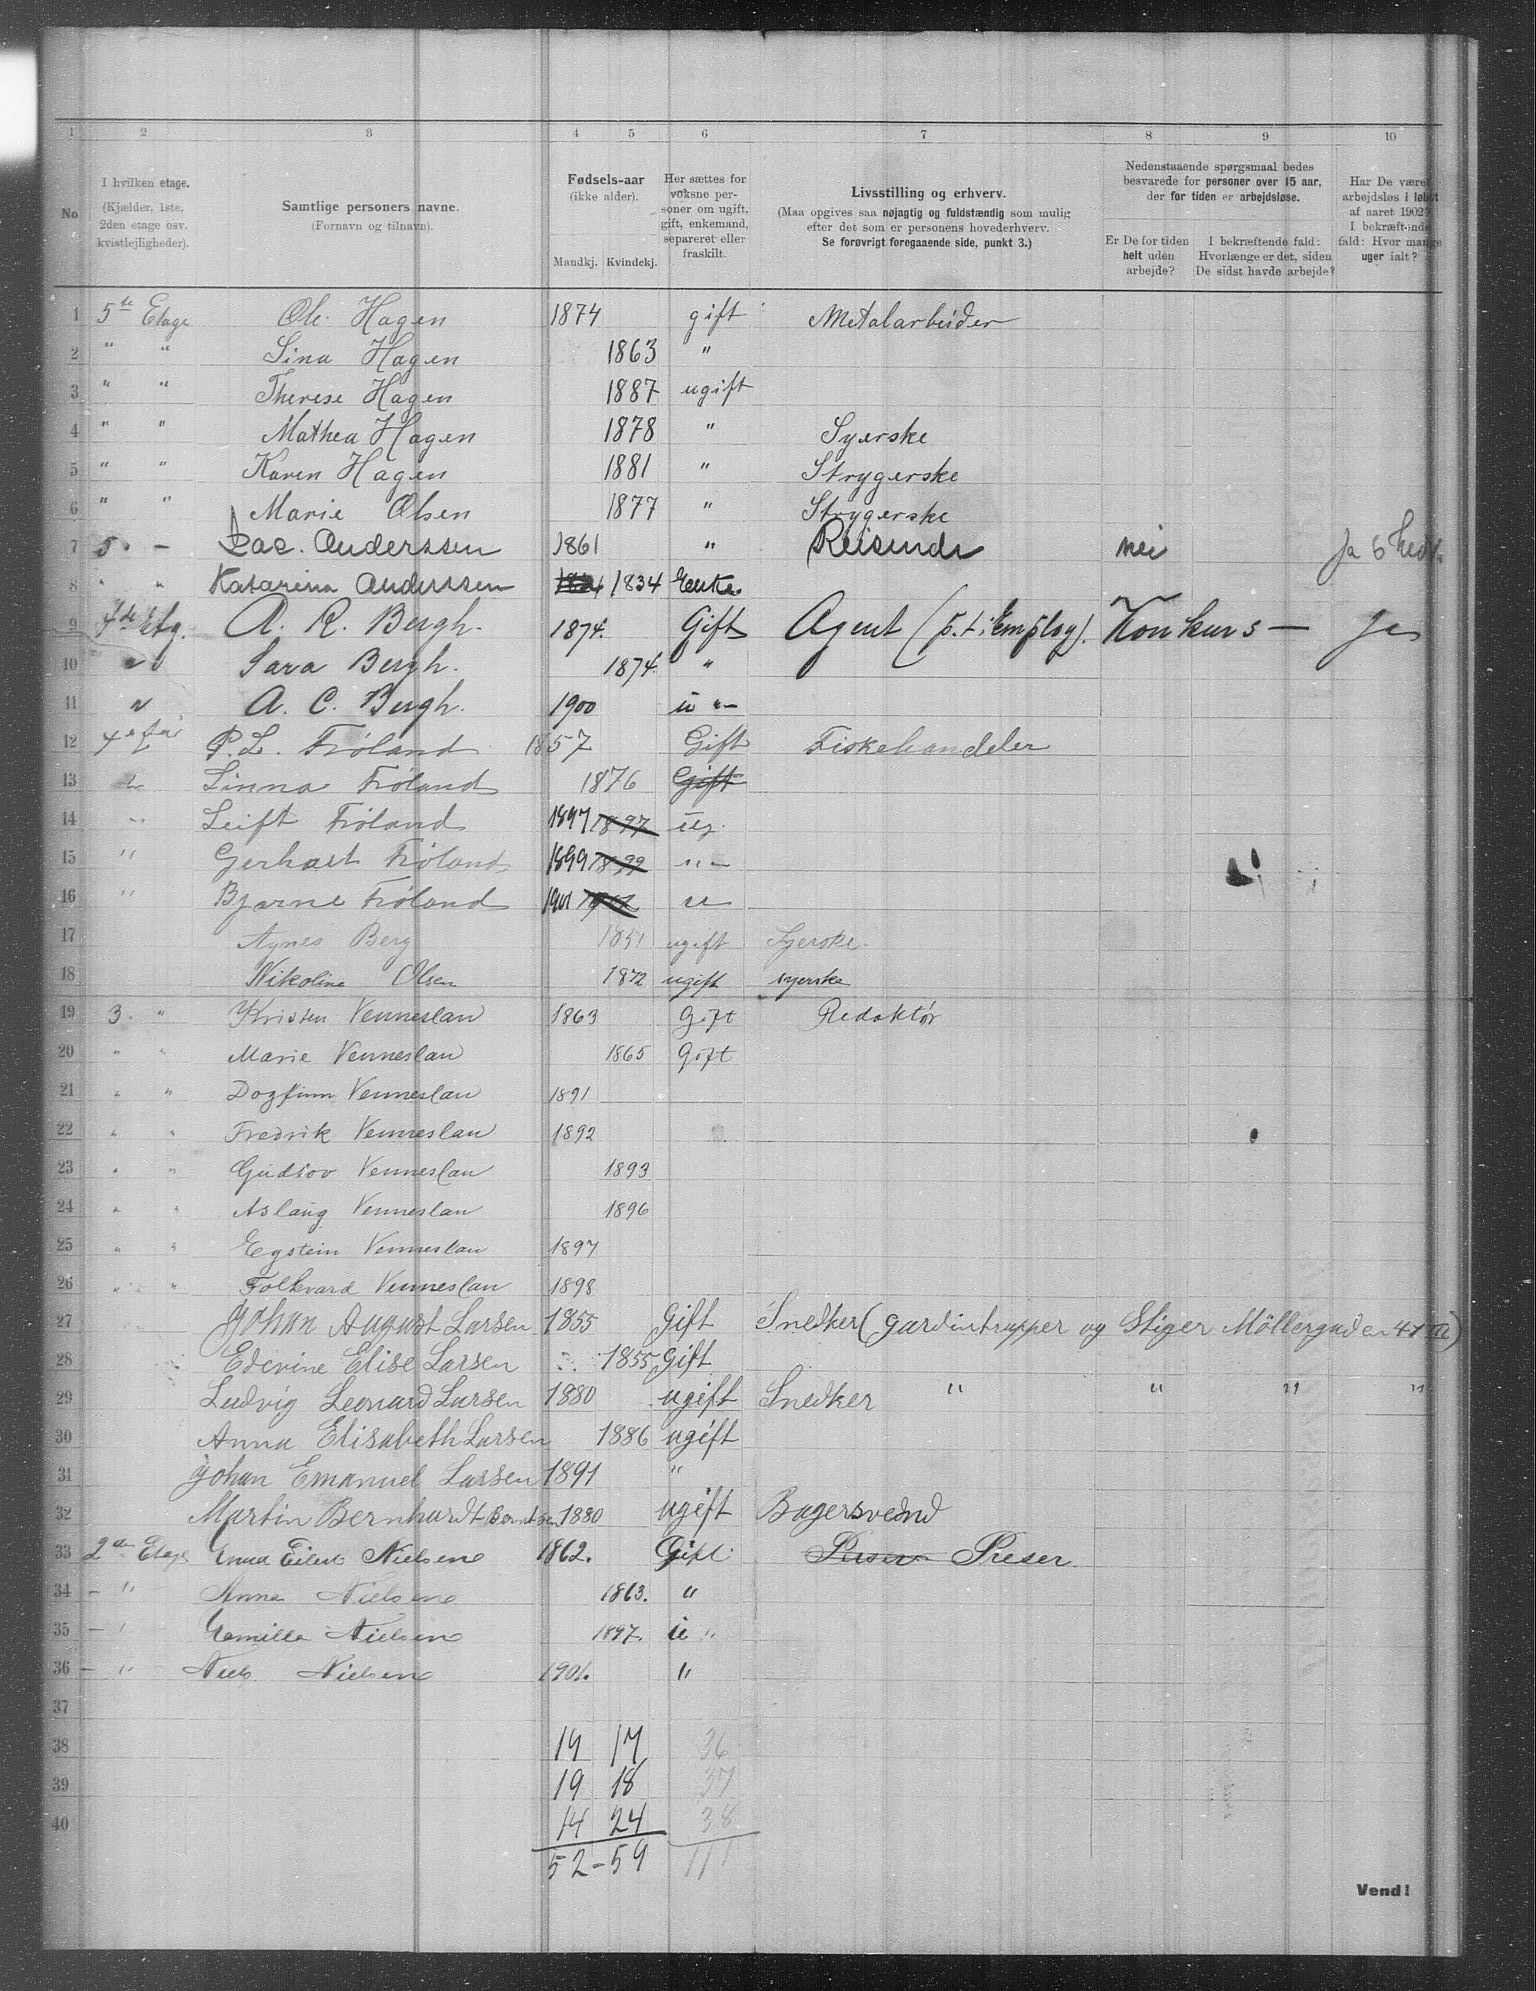 1 2 3 4 5 6 7 8 9 10
No. I hvilken etage. (Kjælder, 1ste, 2den etage osv. kvistlejligheder). Samtlige personers navne. (Fornavn og tilnavn). Fødsels-aar (ikke alder). Mandkj. Kvindekj. Her sættes for voksne personer om ugift, gift, enkemand, separeret eller fraskilt. Livsstilling og erhverv. (Maa opgives saa nøjagtig og fuldstændig som mulig efter det som er personens hovederhverv. Se forøvrigt foregaaende side, punkt 3.) Nedenstaaende spørgsmaal bedes besvarede for personer over 15 aar, der for tiden er arbejdsløse. Er De for tiden helt uden arbejde? I bekræftende fald: Hvorlænge er det, siden De sidst havde arbejde? Har De været arbejdsløs i løbet af aaret 1902? I bekræftende fald: Hvor mange uger ialt?
1 5te Etage Ole Hagen 1874 gift Metalarbeider
2 " " Lina Hagen 1863 "
3 " " Therese Hagen 1887 ugift
4 " " Mathea Hagen 1878 " Syerske
5 " " Karen Hagen 1881 " Strygerske
6 " " Marie Olsen 1877 " Strygerske
7 5. - Anderssen 1861 " Reisende nei Ja 6
8 " " Katarina Anderssen 1834 Enke
9 4de Etg. A. R. Bergh. 1874. Gift Agent (p.t. Employ). Konkurs — Ja
10 " Sara Bergh. 1874. "
11 " A. C. Bergh. 1900 u "-
12 P. L. Frøland 1857 Gift Fiskehandeler
13 Linna Frøland 1876 Gift
14 " Leift Frøland 1897 1897 ug.
15 " Gerhart Frøland 1899 1899 " -
16 " Bjarne Frøland 1901 u
17 Agnes Berg 1851 ugift Syerske
18 Nikoline Olsen 1872 ugift syerske
19 3. " Kristen Venneslan 1863 Gift Redaktør
20 " " Marie Venneslan 1865 Gift
21 " " Dagfinn Venneslan 1891
22 " " Fredrik Venneslan 1892
23 " " Gudlov Venneslan 1893
24 " " Aslaug Venneslan 1896
25 " " Eystein Venneslan 1897
26 " " Folkvard Venneslan 1898
27 Johan August Larsen 1855 Gift Snedker (gardintrapper og Stiger Møllergaden 47 III)
28 Edevine Elise Larsen 1855 Gift
29 Ludvig Leonard Larsen 1880 ugift Snedker " " " "
30 Anna Elisabeth Larsen 1886 ugift
31 Johan Emanuel Larsen 1891 "
32 Martin Bernhardt Berntsen 1880 ugift Bagersvend
33 2den Etage Nielsen 1862. Gift. Preser
34 - " Anna Nielsen 1863. "
35 - " Camilla Nielsen 1897. u "
36 - " Niels Nielsen 1901. "
37
38 19 17 36
39 19 18 37
40 14 24 38
52-59 111
Vend!